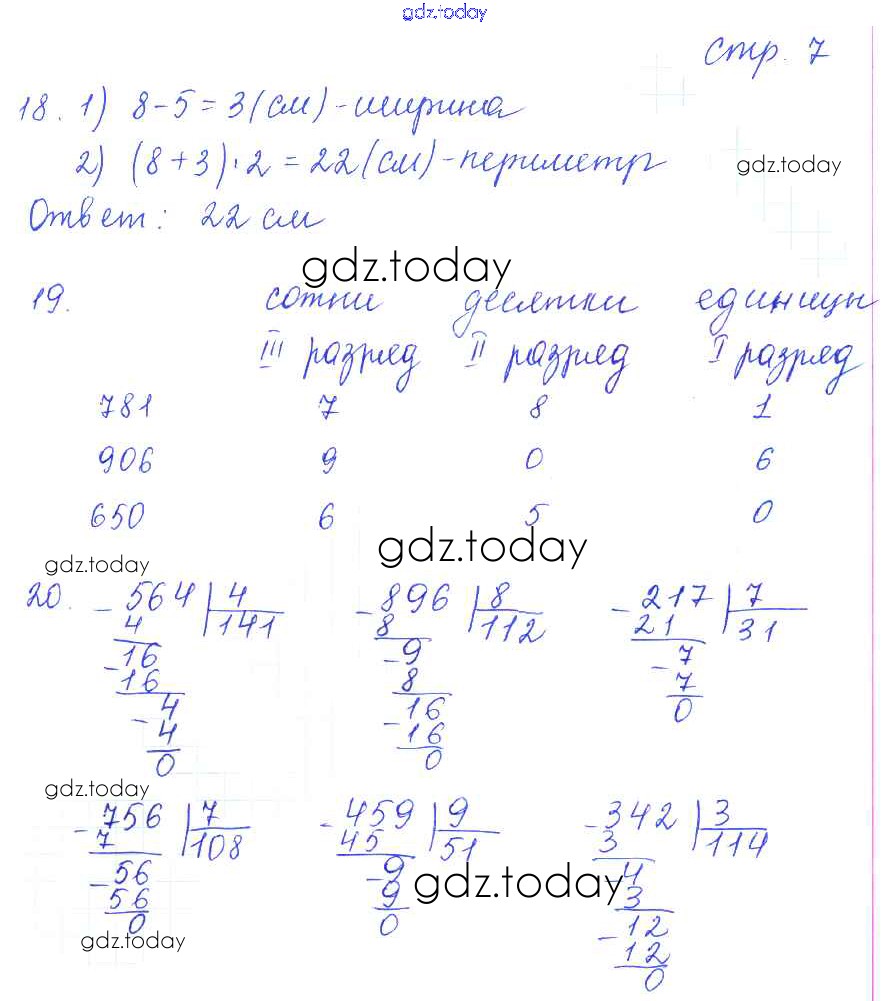 gdz.today
стр. 7
18. 1) 8 - 5 = 3 (см) - ширина
gdz.today
2) (8 + 3) · 2 = 22 (см) - периметр
Ответ: 22 см
gdz.today
19. сотни десятки единицы
III разряд II разряд I разряд
781 7 8 1
906 9 0 6
650 6 5 0
gdz.today
gdz.today
20. - 564 4 - 896 8 - 217 7
4 141 8 112 21 31
- 16 - 9 - 7
16 8 7
- 4 - 16 0
4 16
0 0
gdz.today
- 756 7 - 459 9 - 342 3
7 108 45 51 3 114
- 56 - 9 - 4
56 9 3
0 0 - 12
12
0
gdz.today
gdz.today